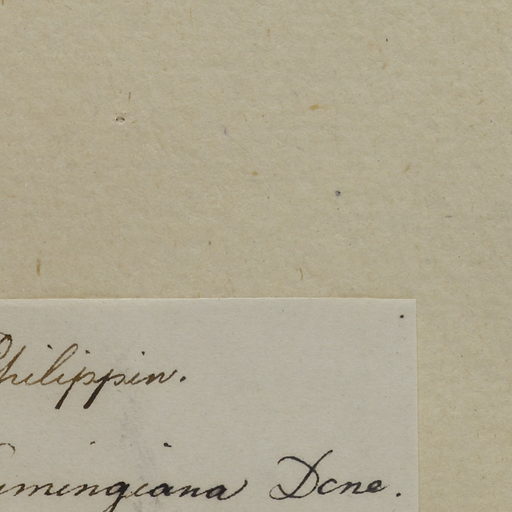 Philippin.
umingiana Dcne.